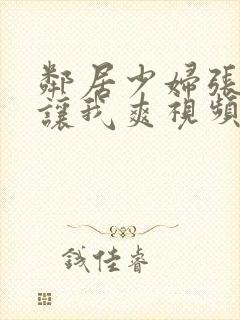 鄰居少婦張
讓我爽視頻
錢佳睿